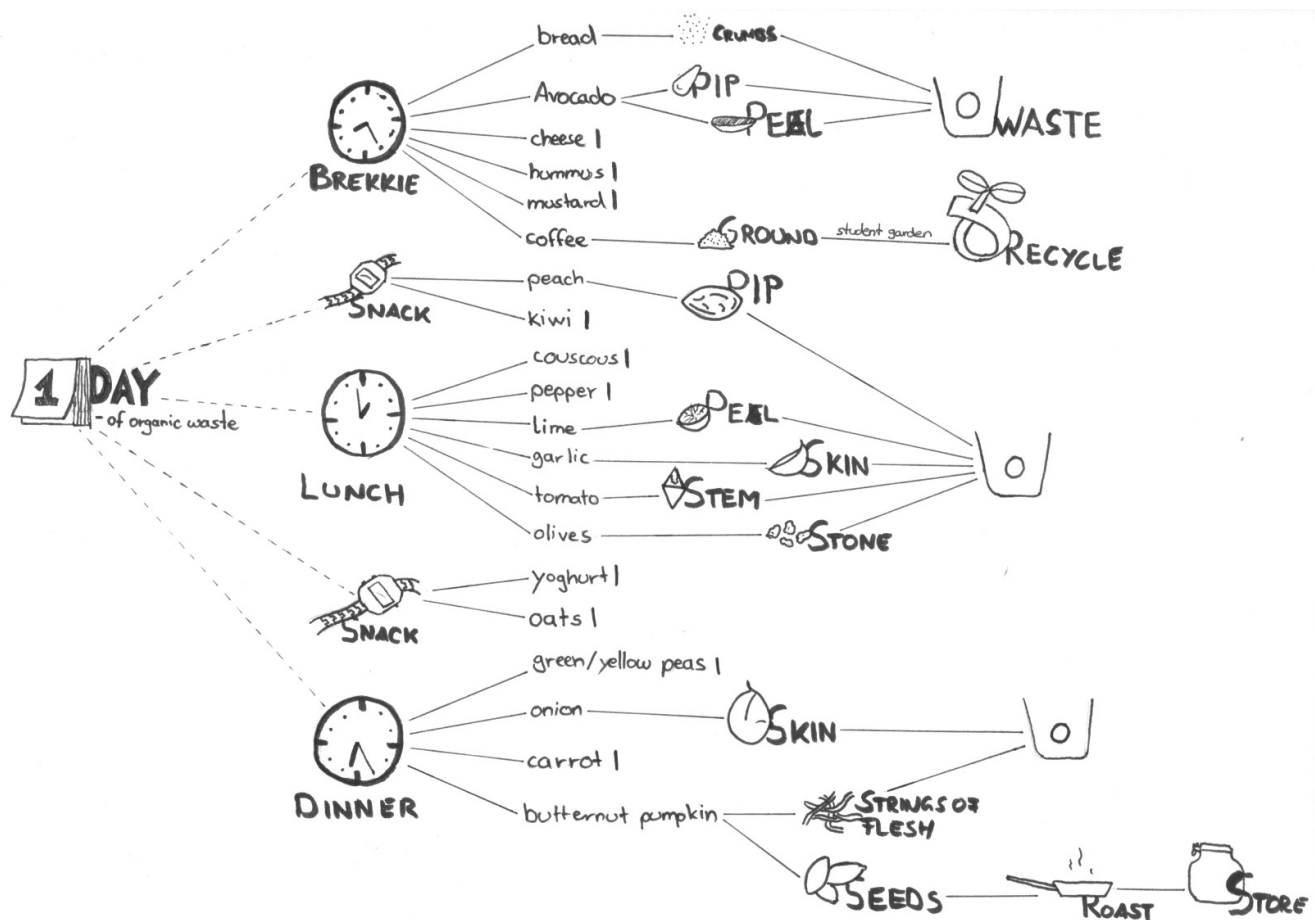 1 DAY
- of organic waste
BREKKIE
bread
CRUMBS
Avocado
PIP
PEEL
WASTE
cheese
hummus
mustard
coffee
GROUND
student garden
RECYCLE
SNACK
peach
PIP
kiwi
LUNCH
couscous
pepper
lime
PEEL
garlic
SKIN
tomato
STEM
olives
STONE
SNACK
yoghurt
oats
DINNER
green/yellow peas
onion
SKIN
carrot
butternut pumpkin
STRINGS OF
FLESH
SEEDS
ROAST
STORE